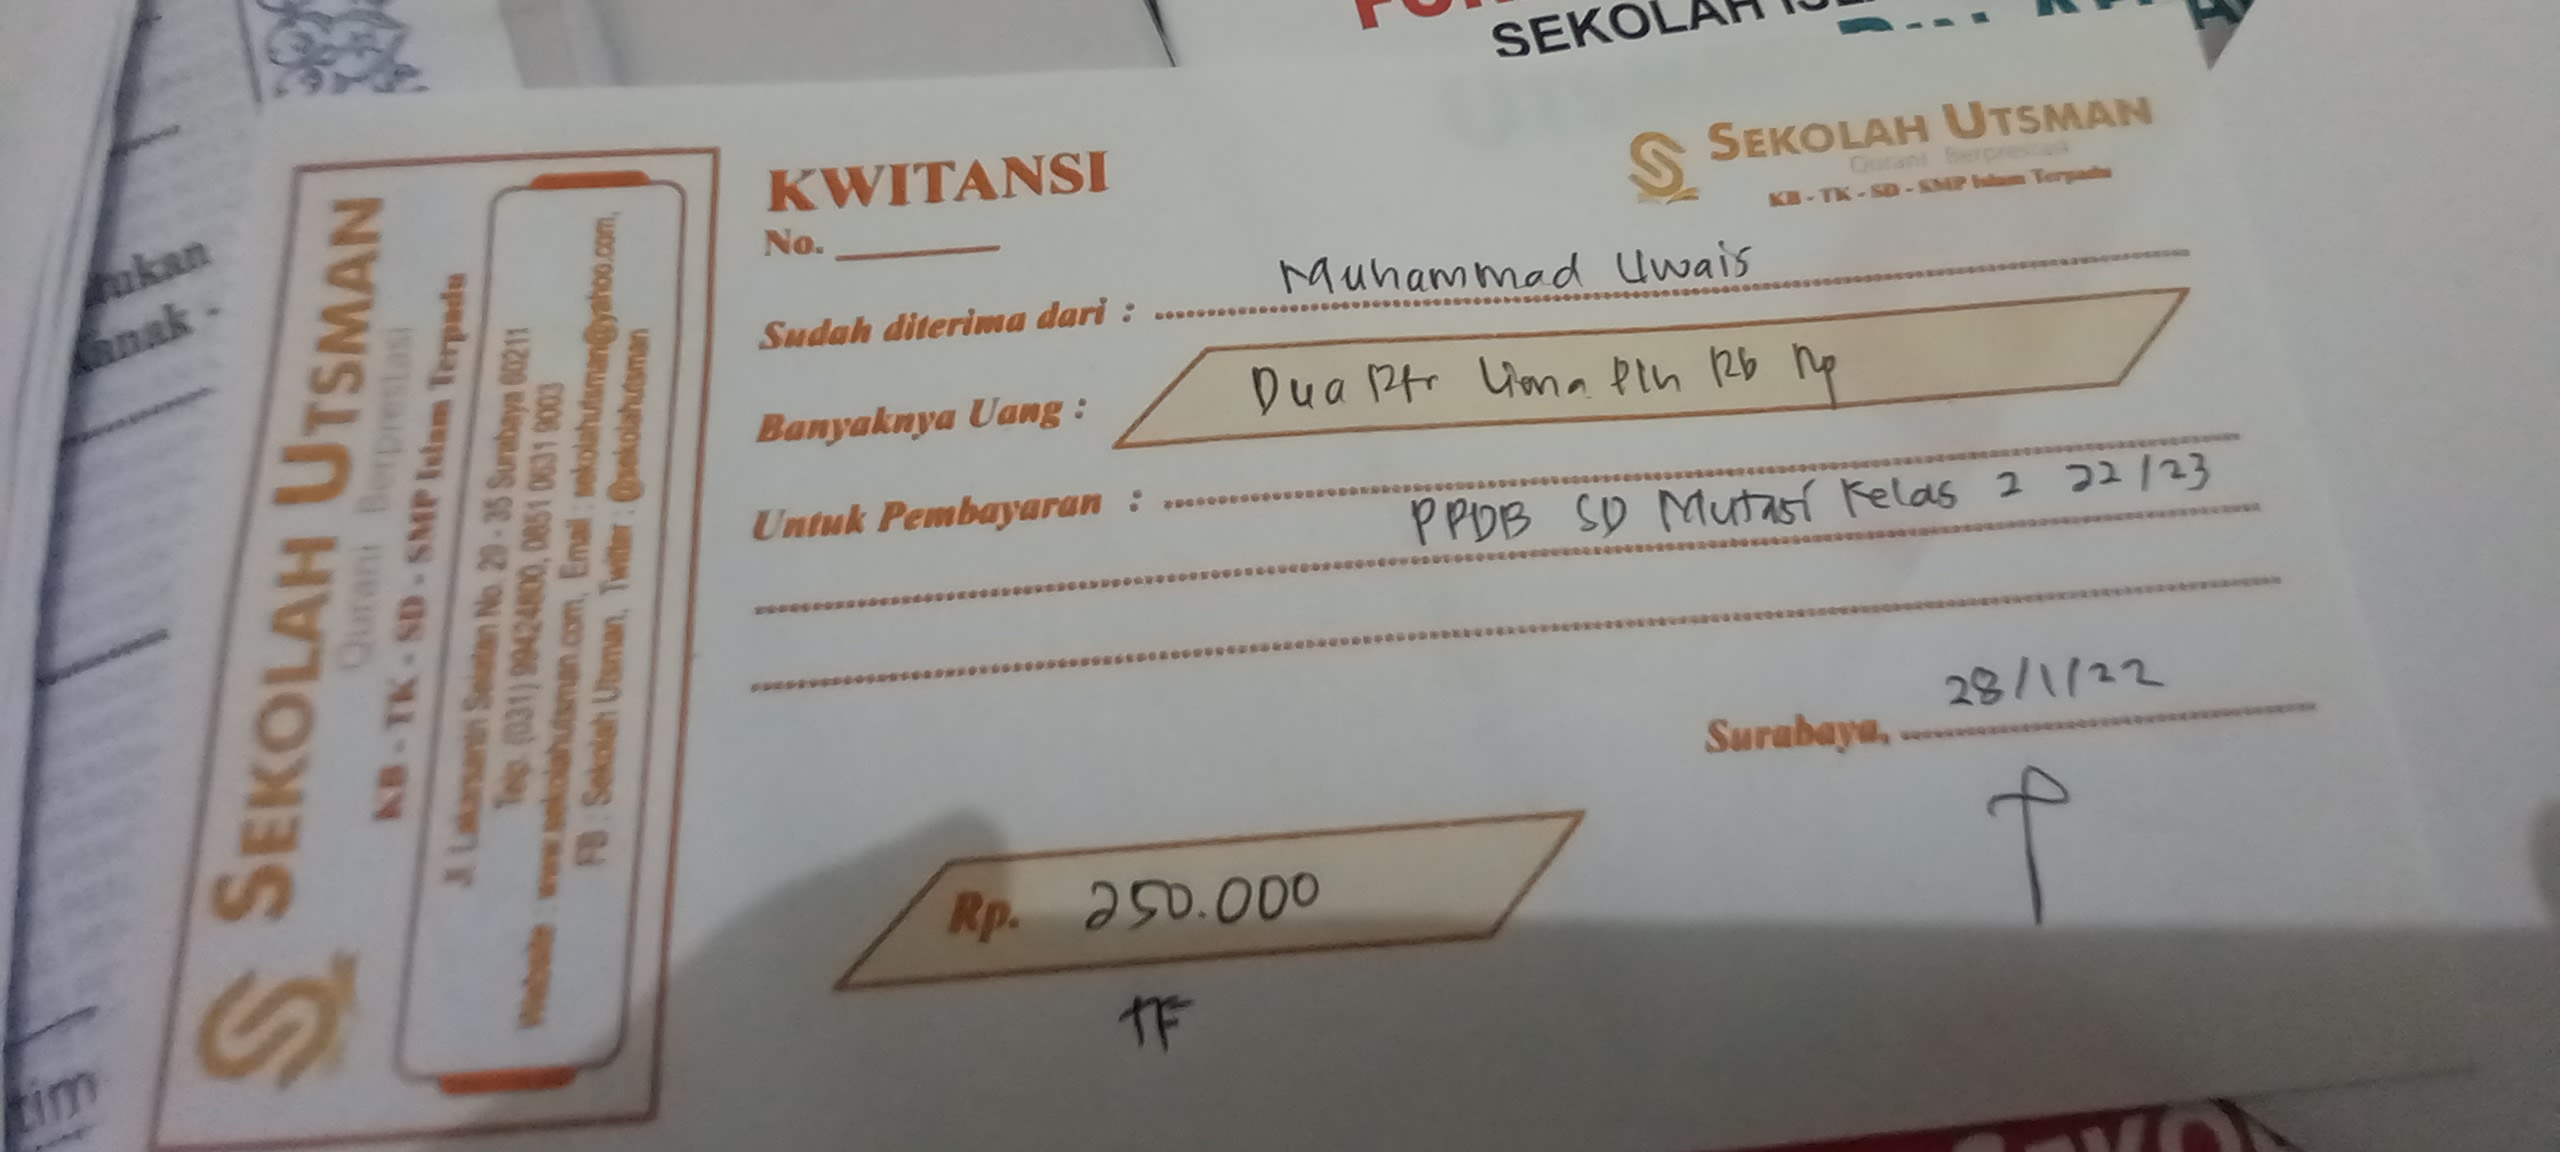 SEKOLAH UTSMAN
Qurani Berprestasi
KB - TK - SD - SMP Islam Terpadu
Jl. Lakarsantri Selatan No. 29 - 35 Surabaya 60211
Telp. (031) 99424800, 0851 0631 9003
Website : www.sekolahutsman.com, Email : sekolahutsman@yahoo.com,
FB : Sekolah Utsman, Twitter : @sekolahutsman
SEKOLAH UTSMAN
Qurani Berprestasi
KB - TK - SD - SMP Islam Terpadu
KWITANSI
No.
Sudah diterima dari : Muhammad Uwais
Banyaknya Uang : Dua Rtr Lima Plh Rb Rp
Untuk Pembayaran : PPDB SD Mutasi Kelas 2 22/23
Rp. 250.000
TF
Surabaya, 28/1/22
SEKOLAH